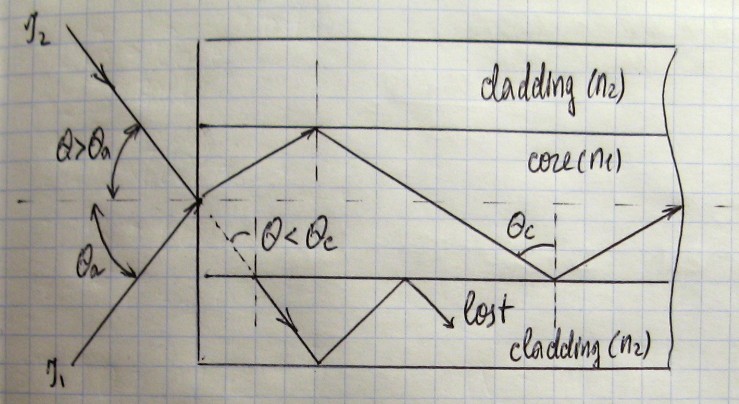 J₂
cladding (n₂)
θ>θₐ
core (n₁)
θₐ
θ<θc
θc
lost
cladding (n₂)
J₁